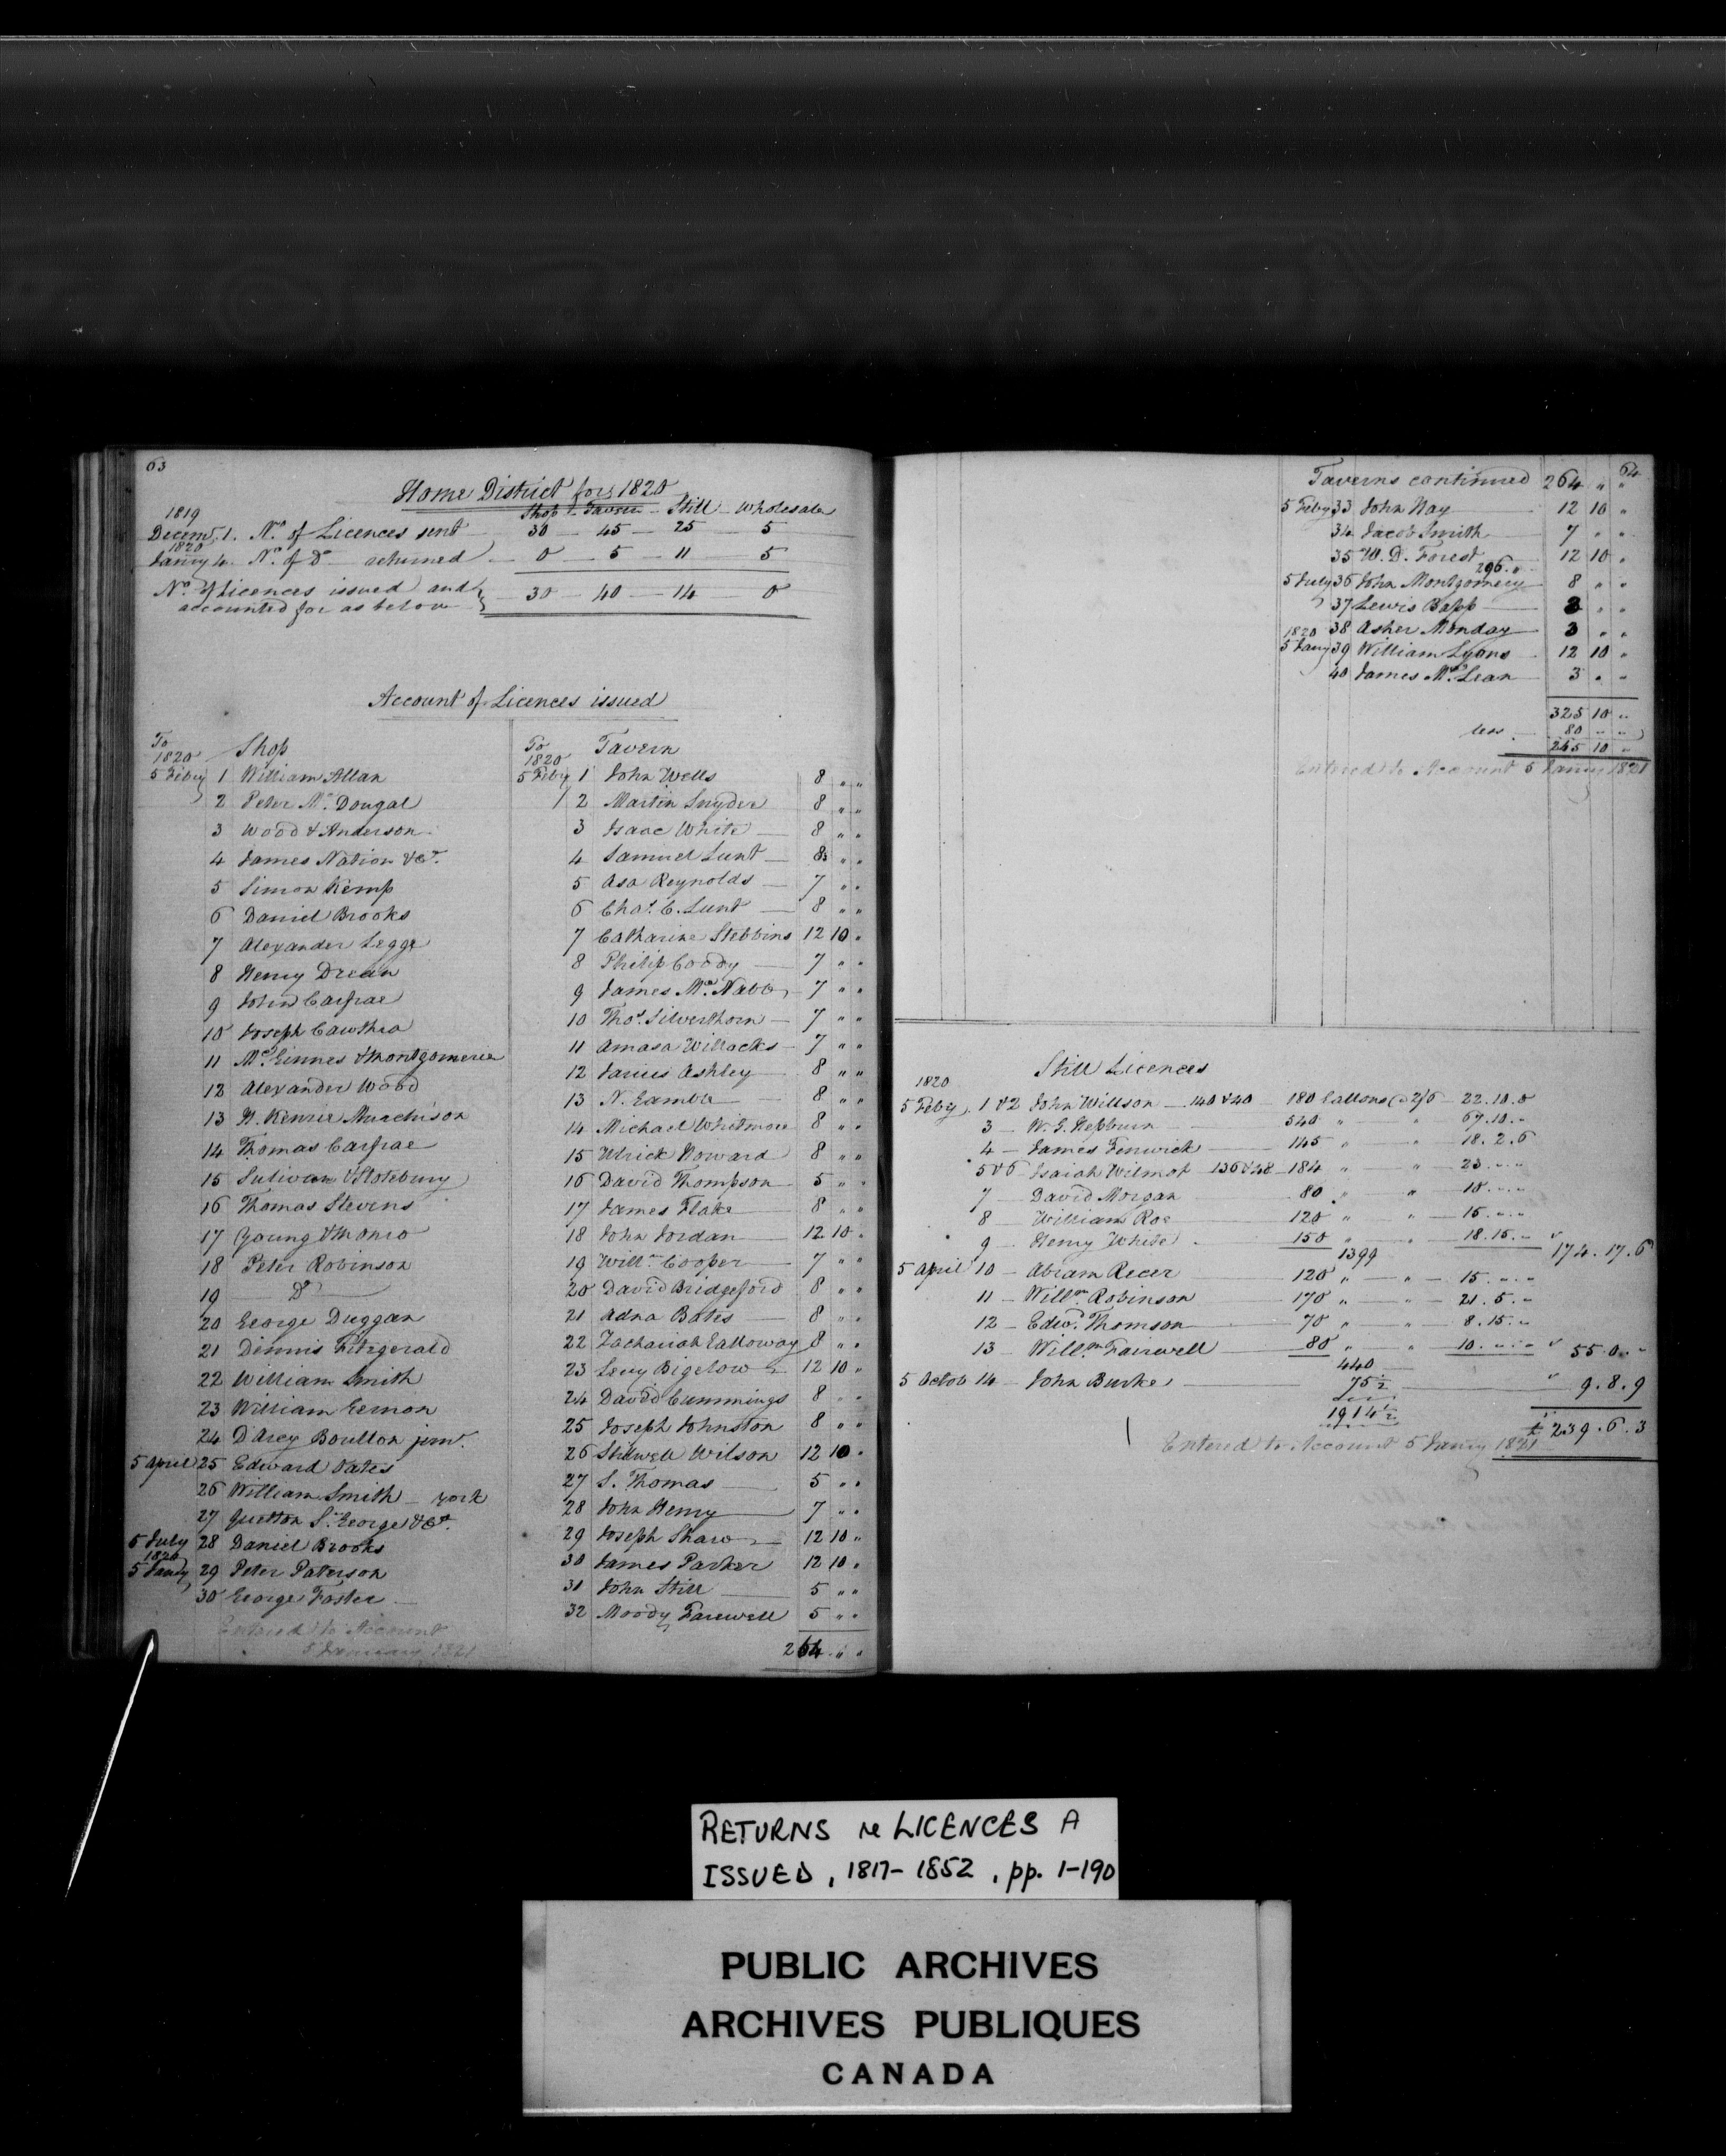 63
Home District for 1820
Shop - Tavern - Still - Wholesale
1819
Decem. 1. No. of Licences sent 30 - 45 - 25 - 5
1820
Janry 4. No. of Do. returned 0 - 5 - 11 5
No. of Licences issued and 30 - 40 - 14 0
accounted for as below
Account of Licences issued
To 1820 Shop
5 Feby 1 William Allan
2 Peter Mc. Dougal
3 Wood & Anderson
4 James Nation & Co.
5 Simon Kemp
6 Daniel Brooks
7 Alexander Legge
8 Henry Drean
9 John Carfrae
10 Joseph Cawthra
11 Mc. Ginnes & Montgomerie
12 Alexander Wood
13 Kenzie Murchison
14 Thomas Carfrae
15 Sulivan & Stotsbury
16 Thomas Stevens
17 Young & Monro
18 Peter Robinson
19 Do.
20 George Duggan
21 Dennis Fitzgerald
22 William Smith
23 William Gernon
24 D'Arcy Boulton junr.
5 April 25 Edward Oates
26 William Smith - york
27 Quetton St. George & Co.
5 July 28 Daniel Brooks
1820
5 Janry 29 Peter Paterson
30 George Foster
Entered to Account
5 January 1821
To 1820 Tavern
5 Feby 1 John Wells 8 " "
2 Martin Snyder 8 " "
3 Isaac White 8 " "
4 Samuel Lunt 8 " "
5 Asa Reynolds 7 " "
6 Chas. C. Lunt 8 " "
7 Catharine Stebbins 12 10 "
8 Philip Coody 7 " "
9 James Mc. Nabb 7 " "
10 Thos. Silverthorn 7 " "
11 Amasa Willcocks 7 " "
12 James Ashley 8 " "
13 N. Gamble 8 " "
14 Michael Whitmore 8 " "
15 Ulrick Howard 8 " "
16 David Thompson 5 " "
17 James Flake 8 " "
18 John Jordan 12 10 "
19 Willm. Cooper 7 " "
20 David Bridgeford 8 " "
21 Adna Bates 8 " "
22 Zachariah Galloway 8 " "
23 Levy Bigelow 12 10 "
24 David Cummings 8 " "
25 Joseph Johnston 8 " "
26 Stilwell Wilson 12 10 "
27 S. Thomas 5 " "
28 John Henry 7 " "
29 Joseph Shaw 12 10 "
30 James Parker 12 10 "
31 John Still 5 " "
32 Moody Farewell 5 " "
264 " "
64
Taverns continued 264 " "
5 Feby 33 John Hay 12 10 "
34 Jacob Smith 7 " "
35 W. D. Forest 12 10 "
296 "
5 July 36 John Montgomery 8 " "
37 Lewis Bapp 3 " "
1820 38 Asher Monday 3 " "
5 Janry 39 William Lyons 12 10 "
40 James Mc. Lean 3 " "
325 10 "
less 80 " "
245 10 "
Entered to Account 5 Janry 1821
Still Licences
1820
5 Feby 1 & 2 John Willson 140 & 40 180 Gallons @ 2/6 22.10.0
3 - W. G. Hepburn 540 " " 67.10."
4 - James Fenwick 145 " " 18.2.6
5 & 6 Isaiah Wilmot 136 & 48 184 " " 23."."
7 - David Morgan 80 " " 10."."
8 - William Roe 120 " " 15."."
9 - Henry White 150 " " 18.15."
1399 174.17.6
5 April 10 - Abram Recer 120 " " 15."."
11 - Willm. Robinson 170 " " 21.5."
12 - Edwd. Thomson 70 " " 8.15."
13 - Willm. Fairwell 80 " " 10."."
440 55.0."
5 Octob 14 - John Burke 75½ 9.8.9
1914½ £239.6.3
Entered to Account 5 Janry 1821
RETURNS re LICENCES A
ISSUED, 1817-1852, pp. 1-190
PUBLIC ARCHIVES
ARCHIVES PUBLIQUES
CANADA